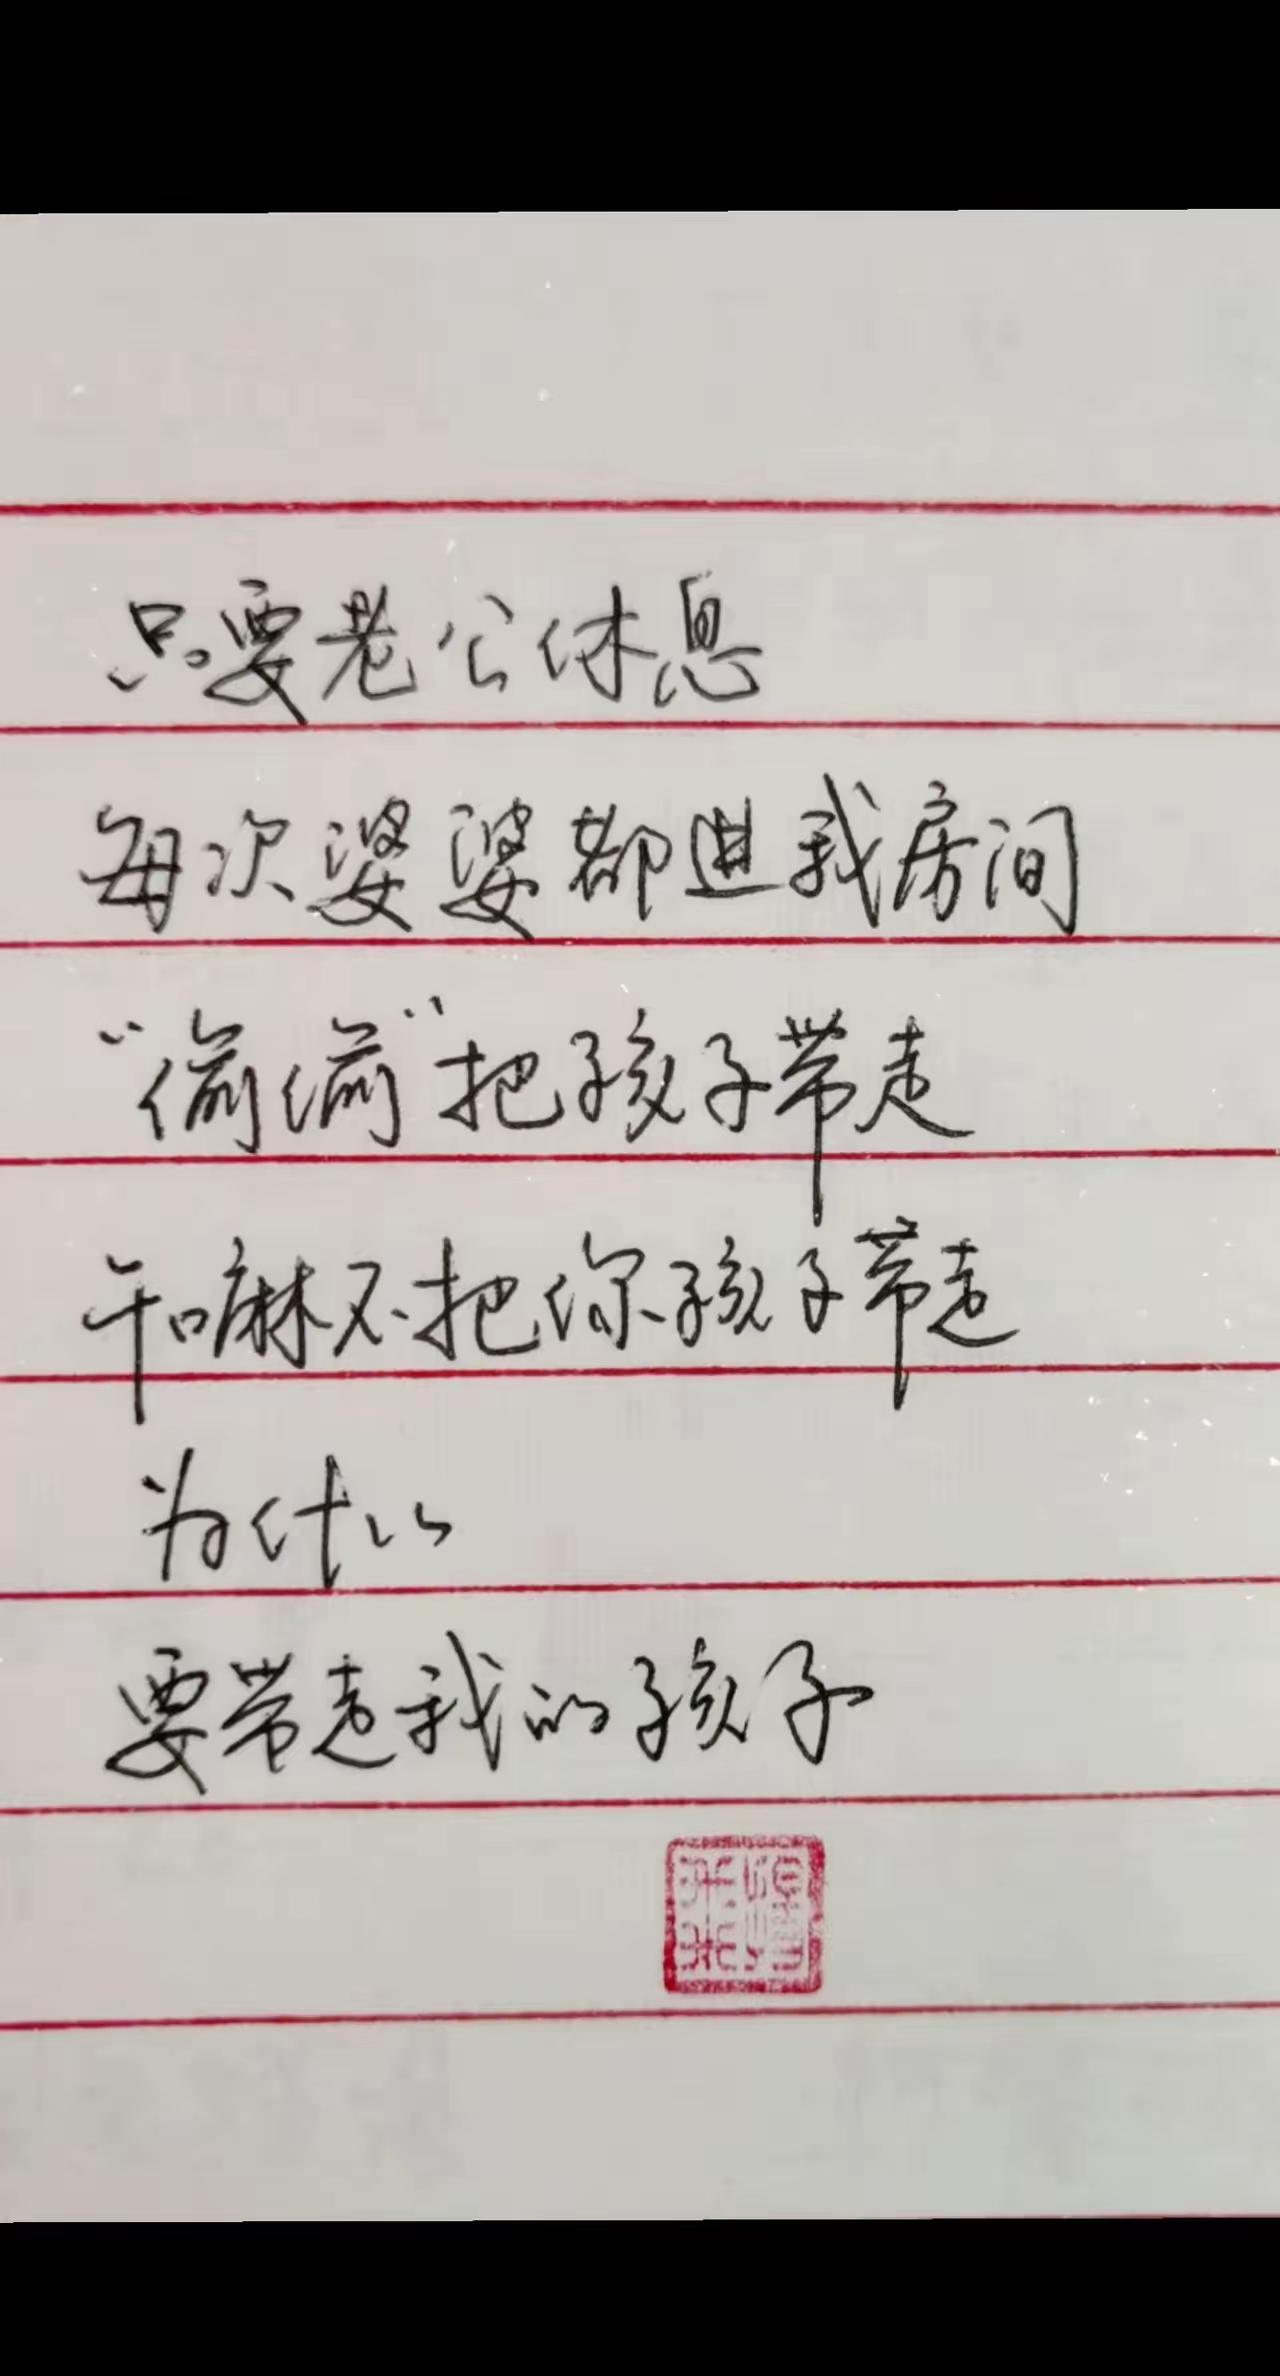 只要老公休息
每次婆婆都进我房间
“偷偷”把孩子带走
干嘛不把你孩子带走
为什么
要带走我的孩子